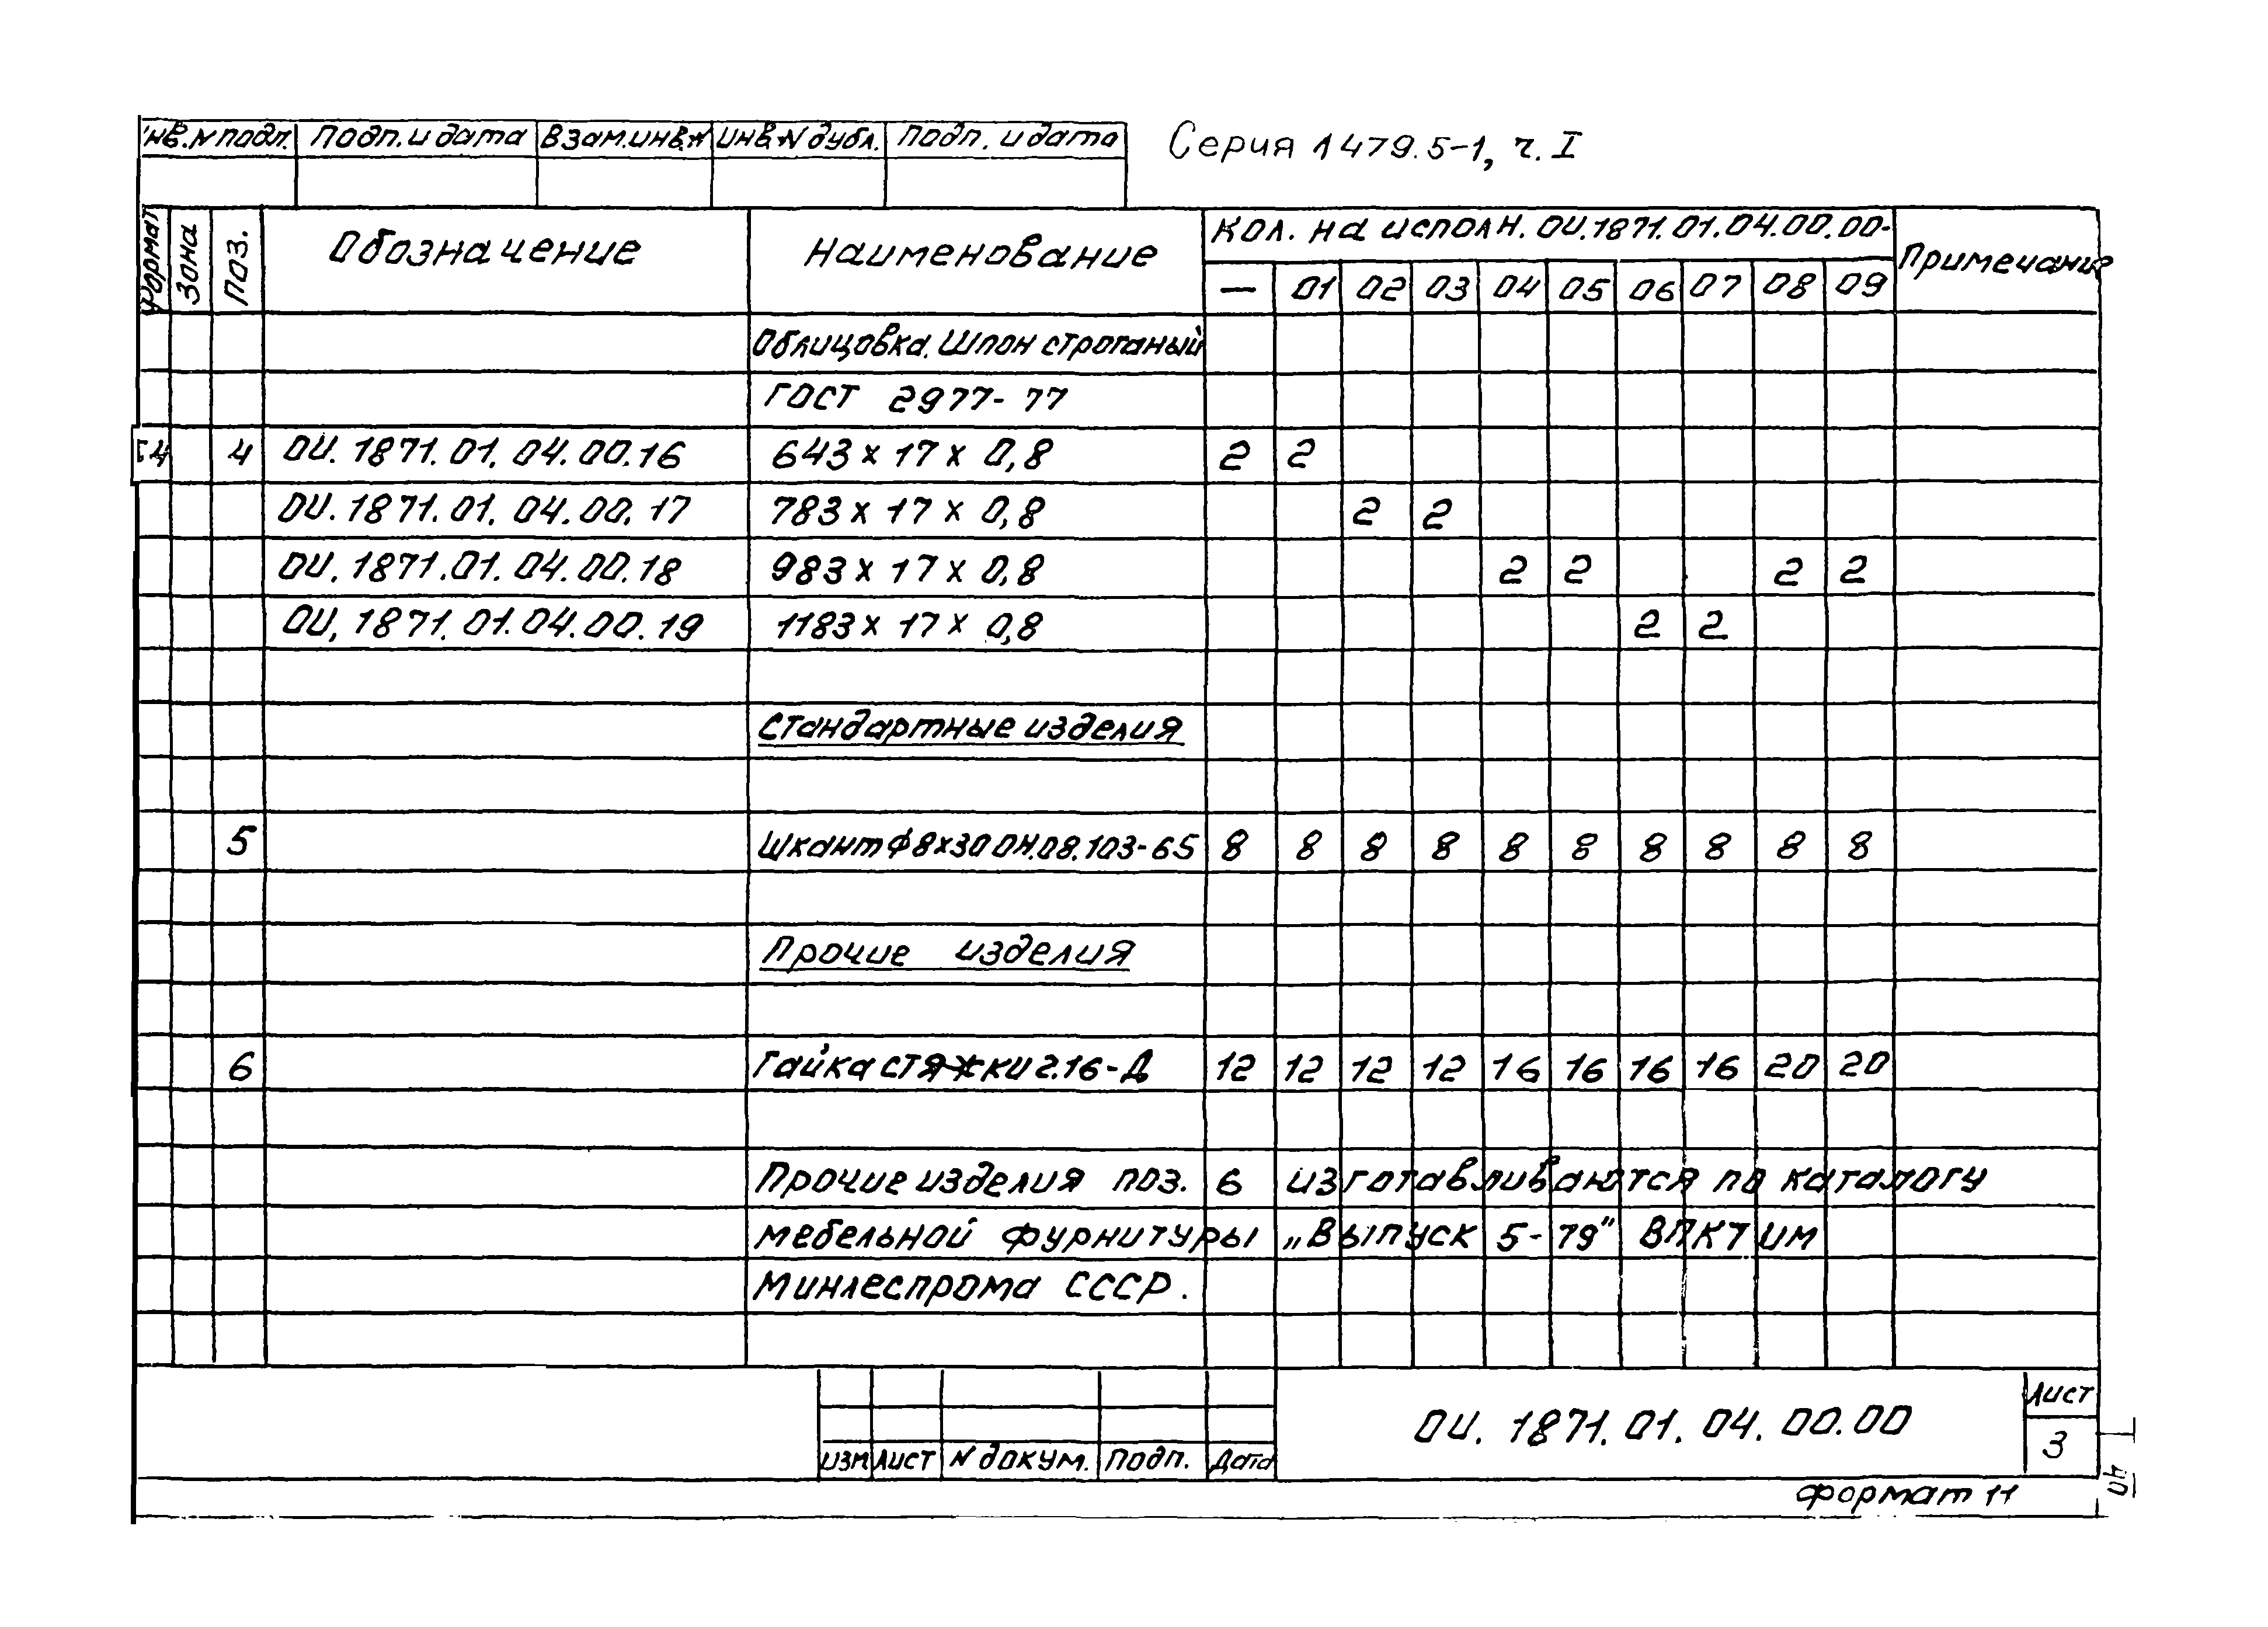 Инв.N подл. Подп. и дата Взам.инв.N Инв.N дубл. Подп. и дата Серия 1479.5-1, ч. I
Формат Зона Поз. Обозначение Наименование Кол. на исполн. ОИ.1871.01.04.00.00- Примечание
— 01 02 03 04 05 06 07 08 09
Облицовка. Шпон строганый
ГОСТ 2977-77
БЧ 4 ОИ.1871.01.04.00.16 643 x 17 x 0,8 2 2
ОИ.1871.01.04.00.17 783 x 17 x 0,8 2 2
ОИ.1871.01.04.00.18 983 x 17 x 0,8 2 2 2 2
ОИ,1871.01.04.00.19 1183 x 17 x 0,8 2 2
Стандартные изделия
5 Шкант ф8х30 ОН.08.103-65 8 8 8 8 8 8 8 8 8 8
Прочие изделия
6 Гайка стяжки 2.16-Д 12 12 12 12 16 16 16 16 20 20
Прочие изделия поз. 6 изготавливаются по каталогу
мебельной фурнитуры „Выпуск 5-79" ВПКТИМ
Минлеспрома СССР.
Изм Лист N докум. Подп. Дата ОИ.1871.01.04.00.00 Лист
3
Формат 11
40